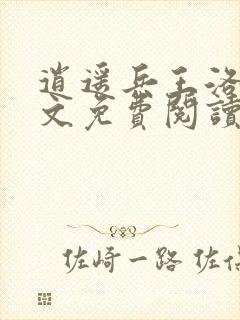 逍遥兵王洛
文免費閱讀
佐崎一路 佐伯